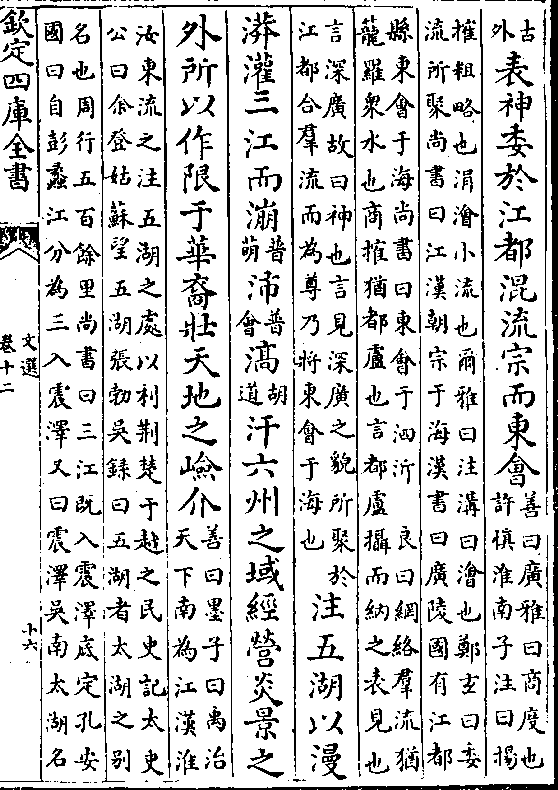 古
外
表神委於江都混流宗而東會
善曰廣雅曰商度也
許慎淮南子注曰揚
搉粗略也涓澮小流也爾雅曰注溝曰澮也鄭玄曰委
流所聚尚書曰江漢朝宗于海漢書曰廣陵國有江都
縣東會于海尚書曰東會于泗沂 良曰網絡羣流猶
籠羅衆水也商搉猶都盧也言都盧攝而納之表見也
言深廣故曰神也言見深廣之貌所聚於
江都合羣流而為尊乃將東會于海也
注五湖以漫
漭灌三江而漰
普
萌
沛
普
會
滈
胡
道
汗六州之域經營炎景之
外所以作限于華裔壯天地之嶮介
善曰墨子曰禹治
天下南為江漢淮
汝東流之注五湖之處以利荆楚于越之民史記太史
公曰余登姑蘇望五湖張勃吳錄曰五湖者太湖之别
名也周行五百餘里尚書曰三江既入震澤底定孔安
國曰自彭蠡江分為三入震澤又曰震澤吳南太湖名
欽定四庫全書
文選
卷十二
十六